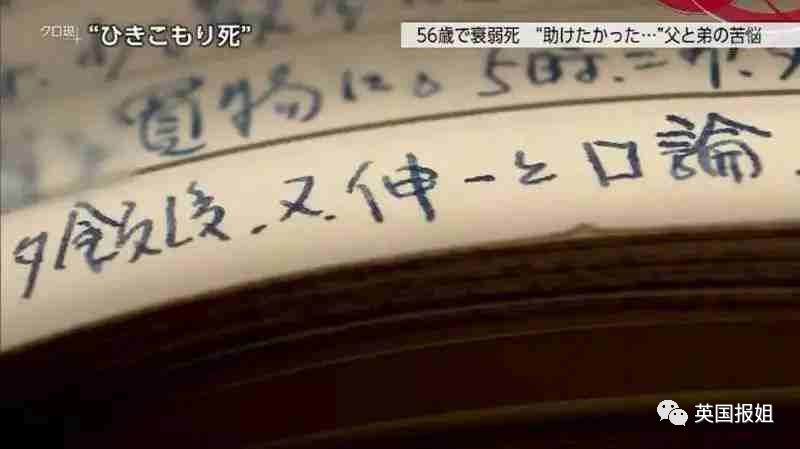 クロ現+
“ひきこもり死”
56歳で衰弱死 “助けたかった…”父と弟の苦悩
買物に。5時.
夕飯後.又.伸一と口論.
英国报姐